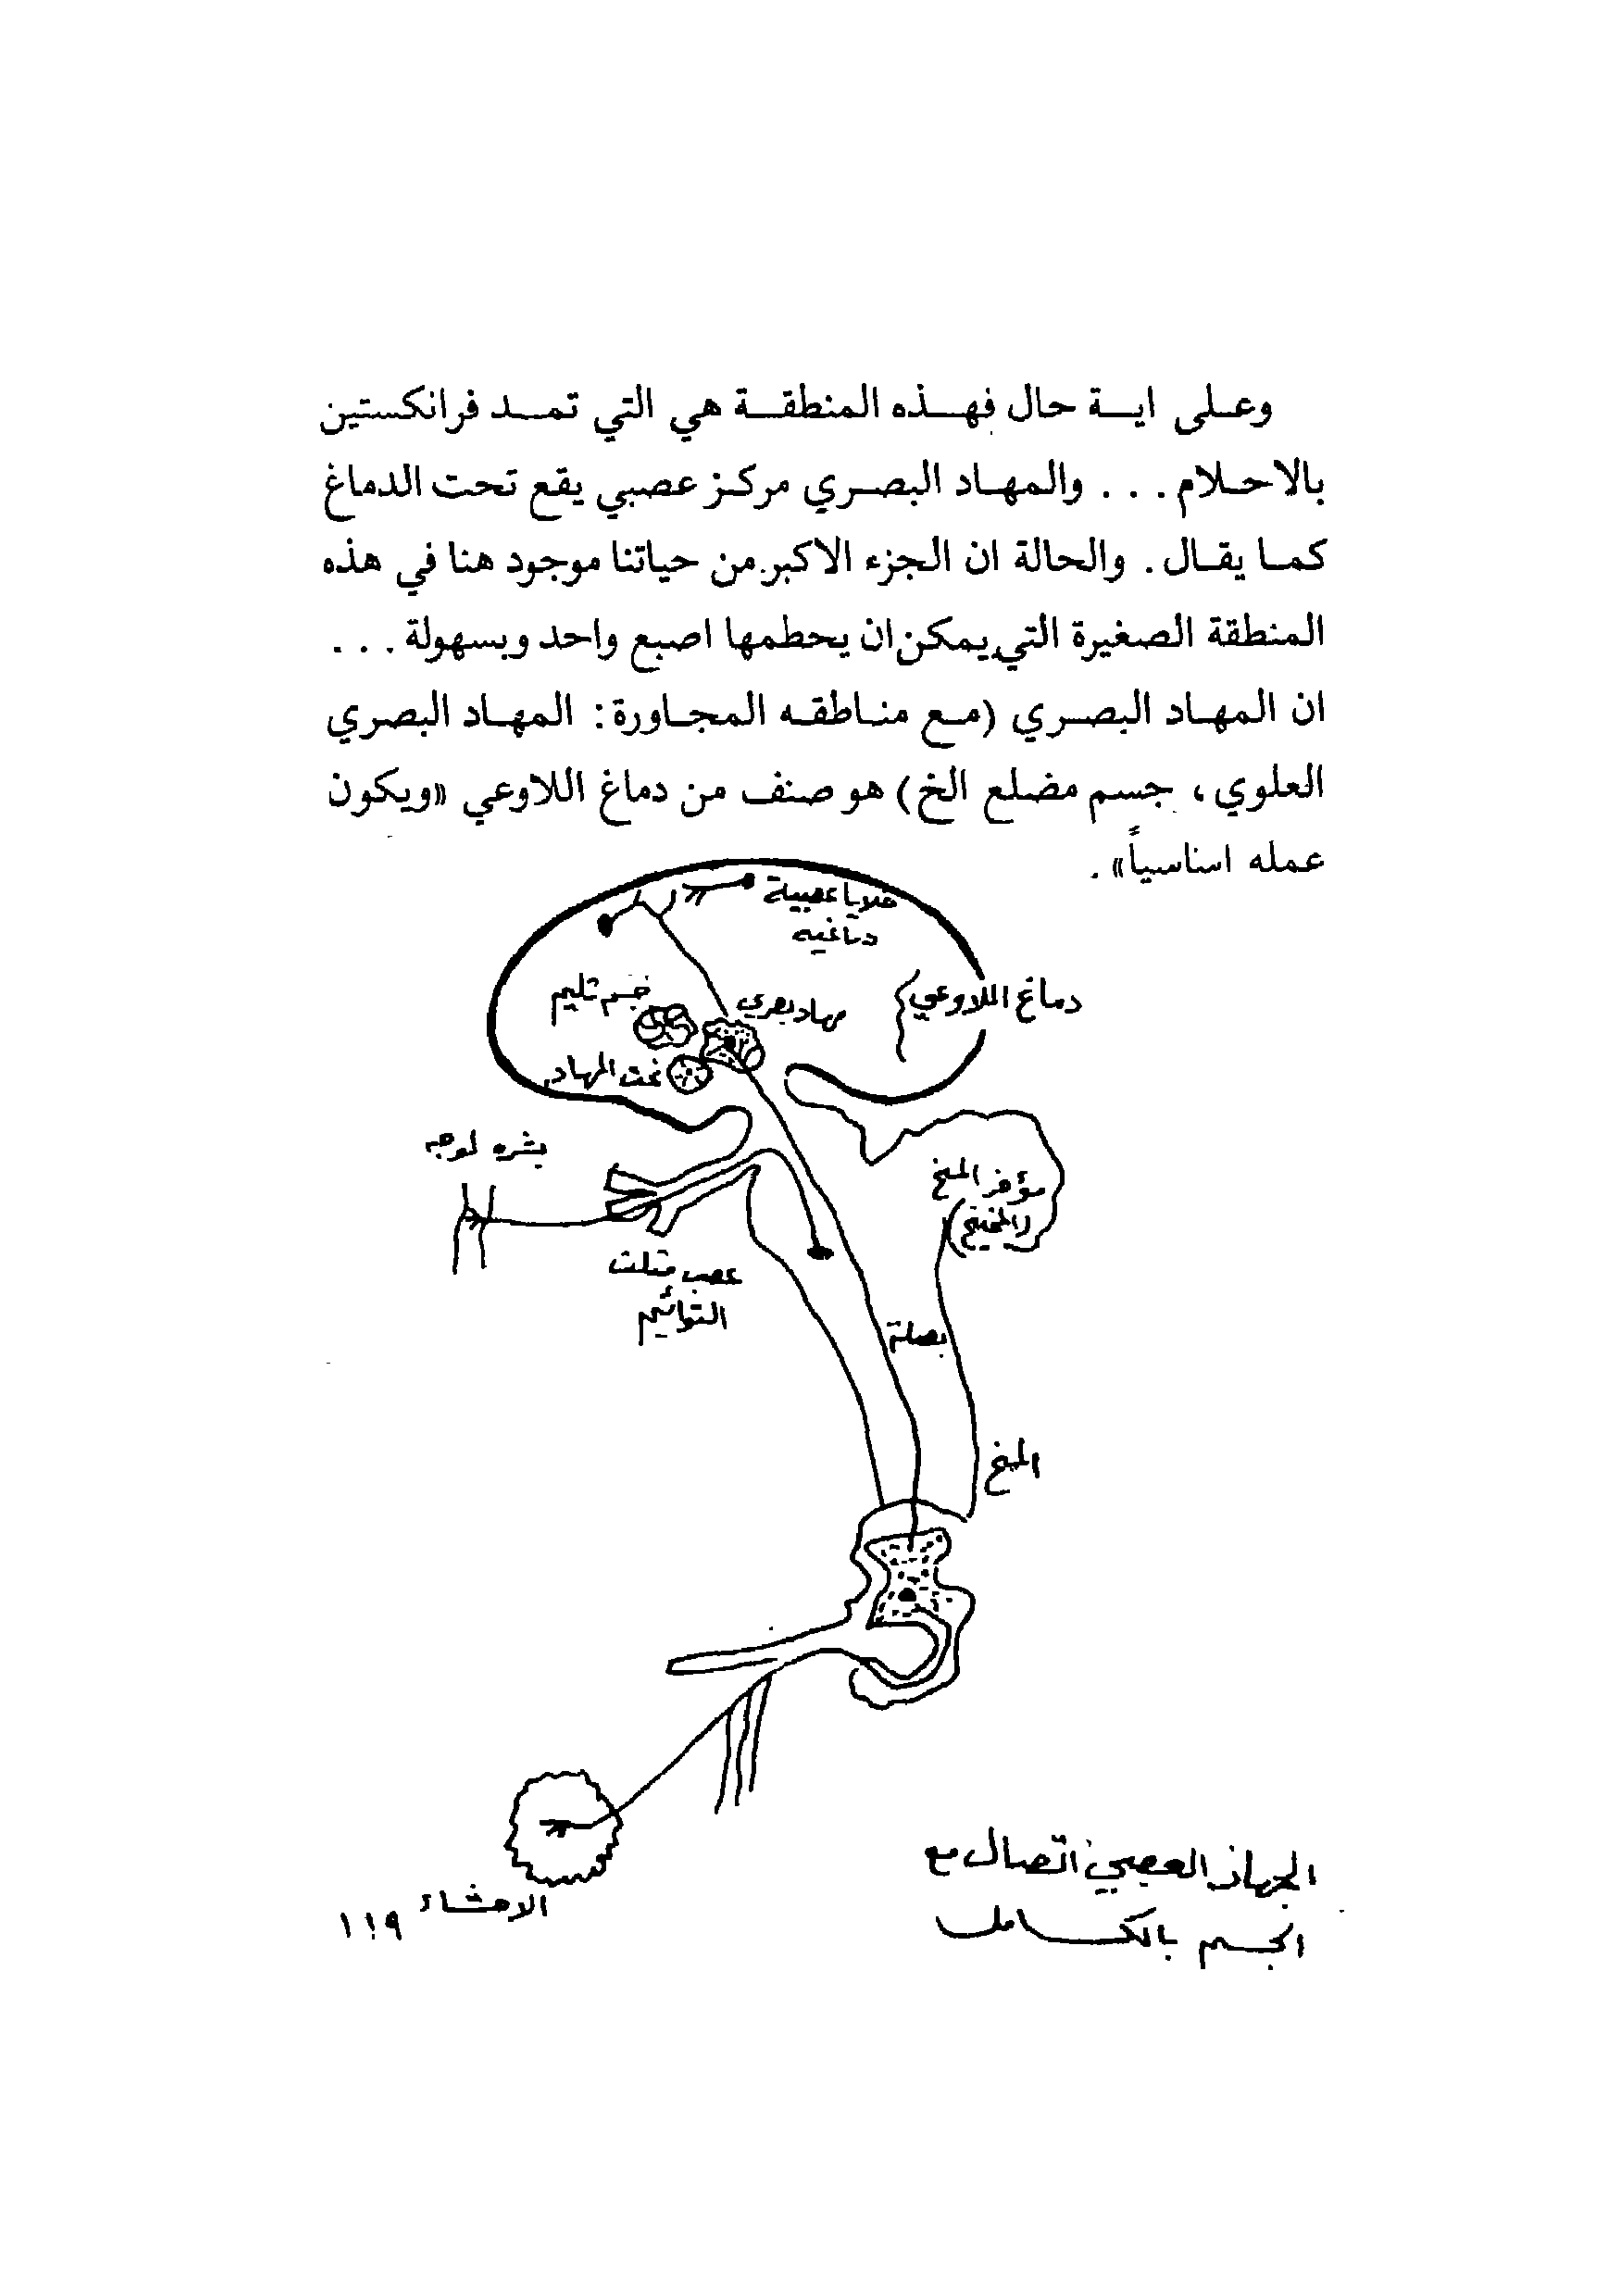 وعلى اية حال فهذه المنطقة هي التي تمد فرانكستين
بالاحلام . . . والمهاد البصري مركز عصبي يقع تحت الدماغ
كما يقال . والحالة ان الجزء الاكبر من حياتنا موجود هنا في هذه
المنطقة الصغيرة التي يمكن ان يحطمها اصبع واحد وبسهولة . . .
ان المهاد البصري (مع مناطقه المجاورة : المهاد البصري
العلوي ، جسم مضلع الخ) هو صنف من دماغ اللاوعي «ويكون
عمله اساسياً» .
خلايا عصبية
دماغيه
دماغ اللاوعي
مهاد بصري
تحت المهاد
بشره لوجه
مؤخر المخ
(المخيخ)
عصب مثلث
التوائيم
بصلة
المخ
الاحشاء
الجهاز العصبي اتصال مع
الجسم بالكامل
١١٩